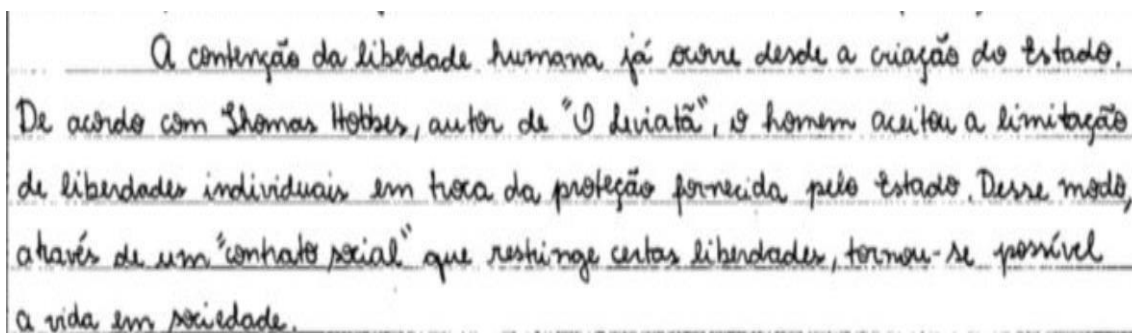 A contenção da liberdade humana já ocorre desde a criação do Estado.
De acordo com Thomas Hobbes, autor de "O Leviatã", o homem aceitou a limitação
de liberdades individuais em troca da proteção fornecida pelo Estado. Desse modo,
através de um "contrato social" que restringe certas liberdades, tornou-se possível
a vida em sociedade.